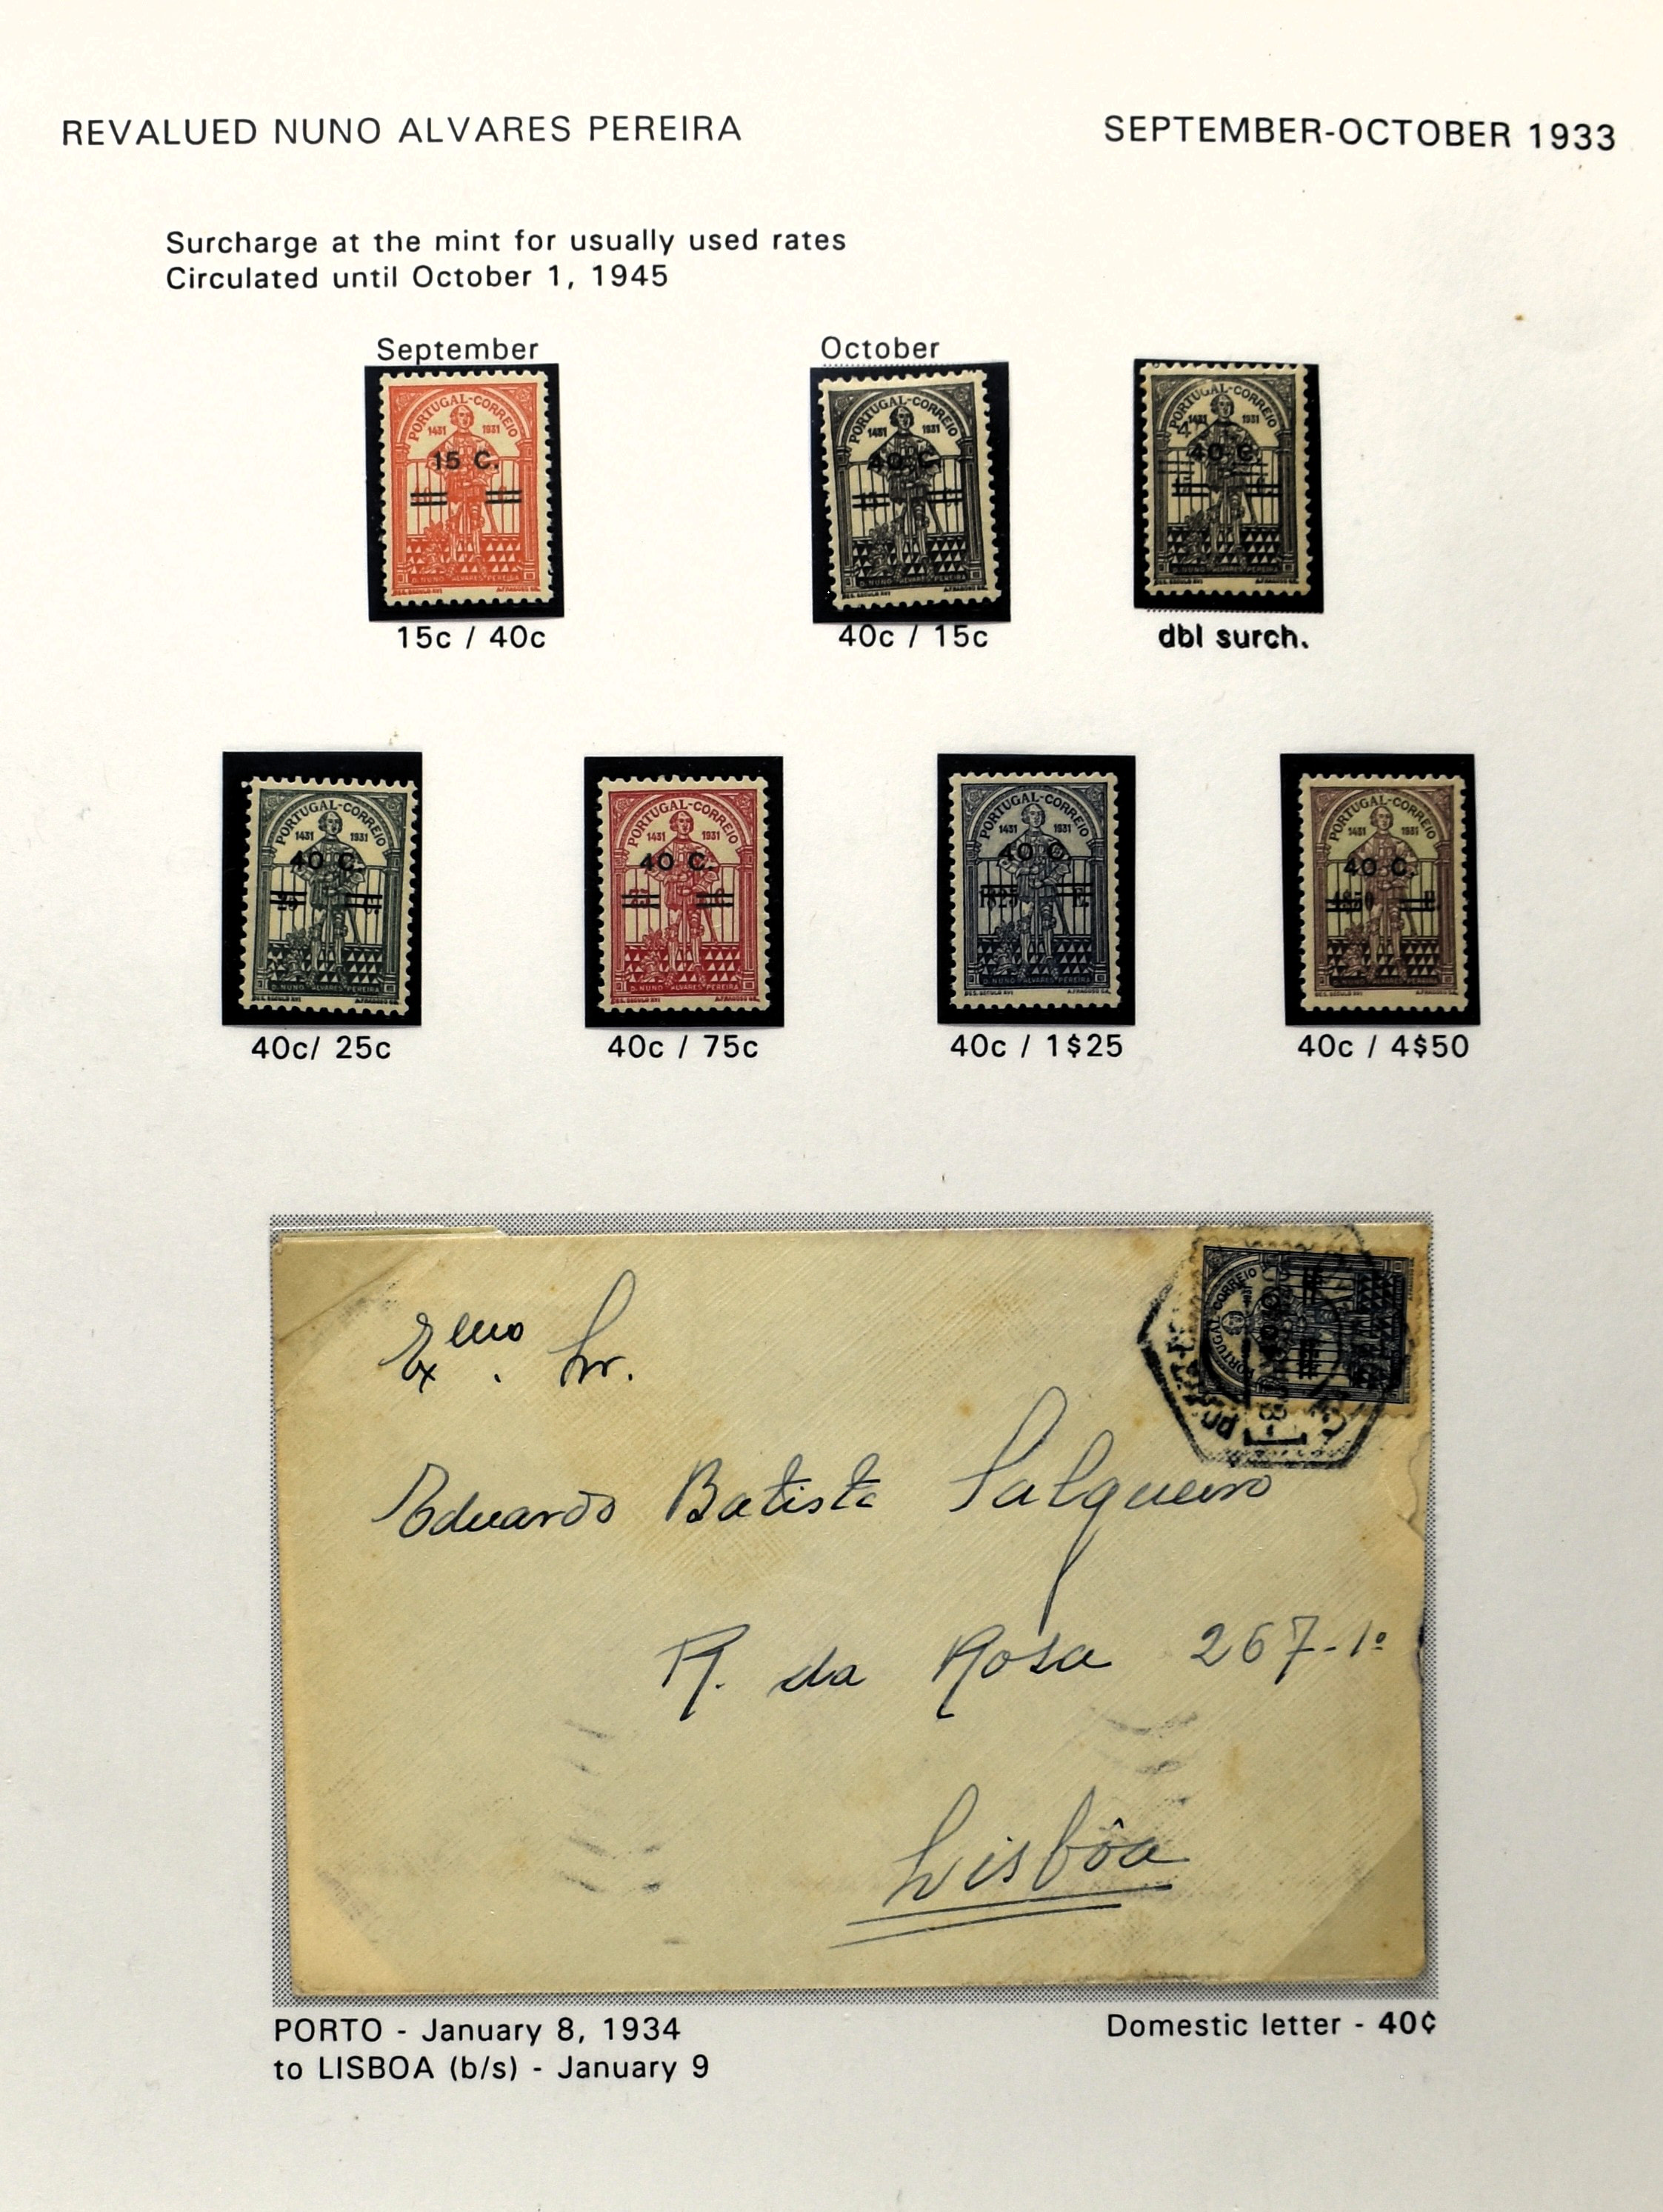 REVALUED NUNO ALVARES PEREIRA
SEPTEMBER-OCTOBER 1933
Surcharge at the mint for usually used rates
Circulated until October 1, 1945
September
October
PORTUGAL-CORREIO
1431 1931
15 C.
D. NUNO ALVARES PEREIRA
PORTUGAL-CORREIO
1431 1931
40 C.
D. NUNO ALVARES PEREIRA
PORTUGAL-CORREIO
1431 1931
40 C.
D. NUNO ALVARES PEREIRA
15c / 40c
40c / 15c
dbl surch.
PORTUGAL-CORREIO
1431 1931
40 C.
25 C.
D. NUNO ALVARES PEREIRA
PORTUGAL-CORREIO
1431 1931
40 C.
75 C.
D. NUNO ALVARES PEREIRA
PORTUGAL-CORREIO
1431 1931
40 C.
1$25 E.
D. NUNO ALVARES PEREIRA
PORTUGAL-CORREIO
1431 1931
40 C.
4$50 E.
D. NUNO ALVARES PEREIRA
40c/ 25c
40c / 75c
40c / 1$25
40c / 4$50
PORTUGAL-CORREIO
Exmo. Sr.
Eduardo Batista Salgueiro
R. da Rosa 267-1º
Lisbôa
PORTO - January 8, 1934
to LISBOA (b/s) - January 9
Domestic letter - 40¢